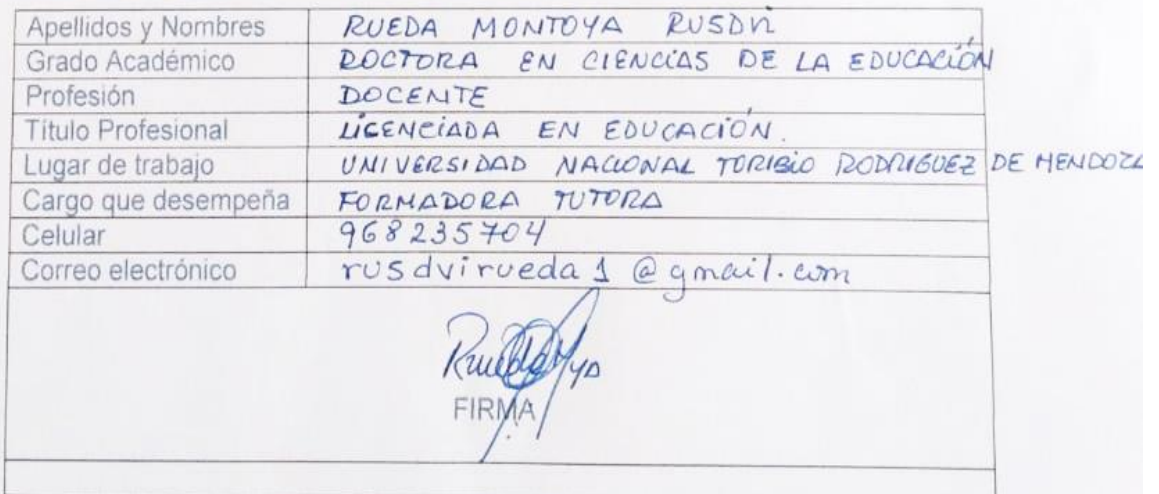 Apellidos y Nombres RUEDA MONTOYA RUSDVI
Grado Académico DOCTORA EN CIENCIAS DE LA EDUCACIÓN
Profesión DOCENTE
Título Profesional LICENCIADA EN EDUCACIÓN.
Lugar de trabajo UNIVERSIDAD NACIONAL TORIBIO RODRIGUEZ DE MENDOZA
Cargo que desempeña FORMADORA TUTORA
Celular 968235704
Correo electrónico rusdvirueda1@gmail.com
FIRMA